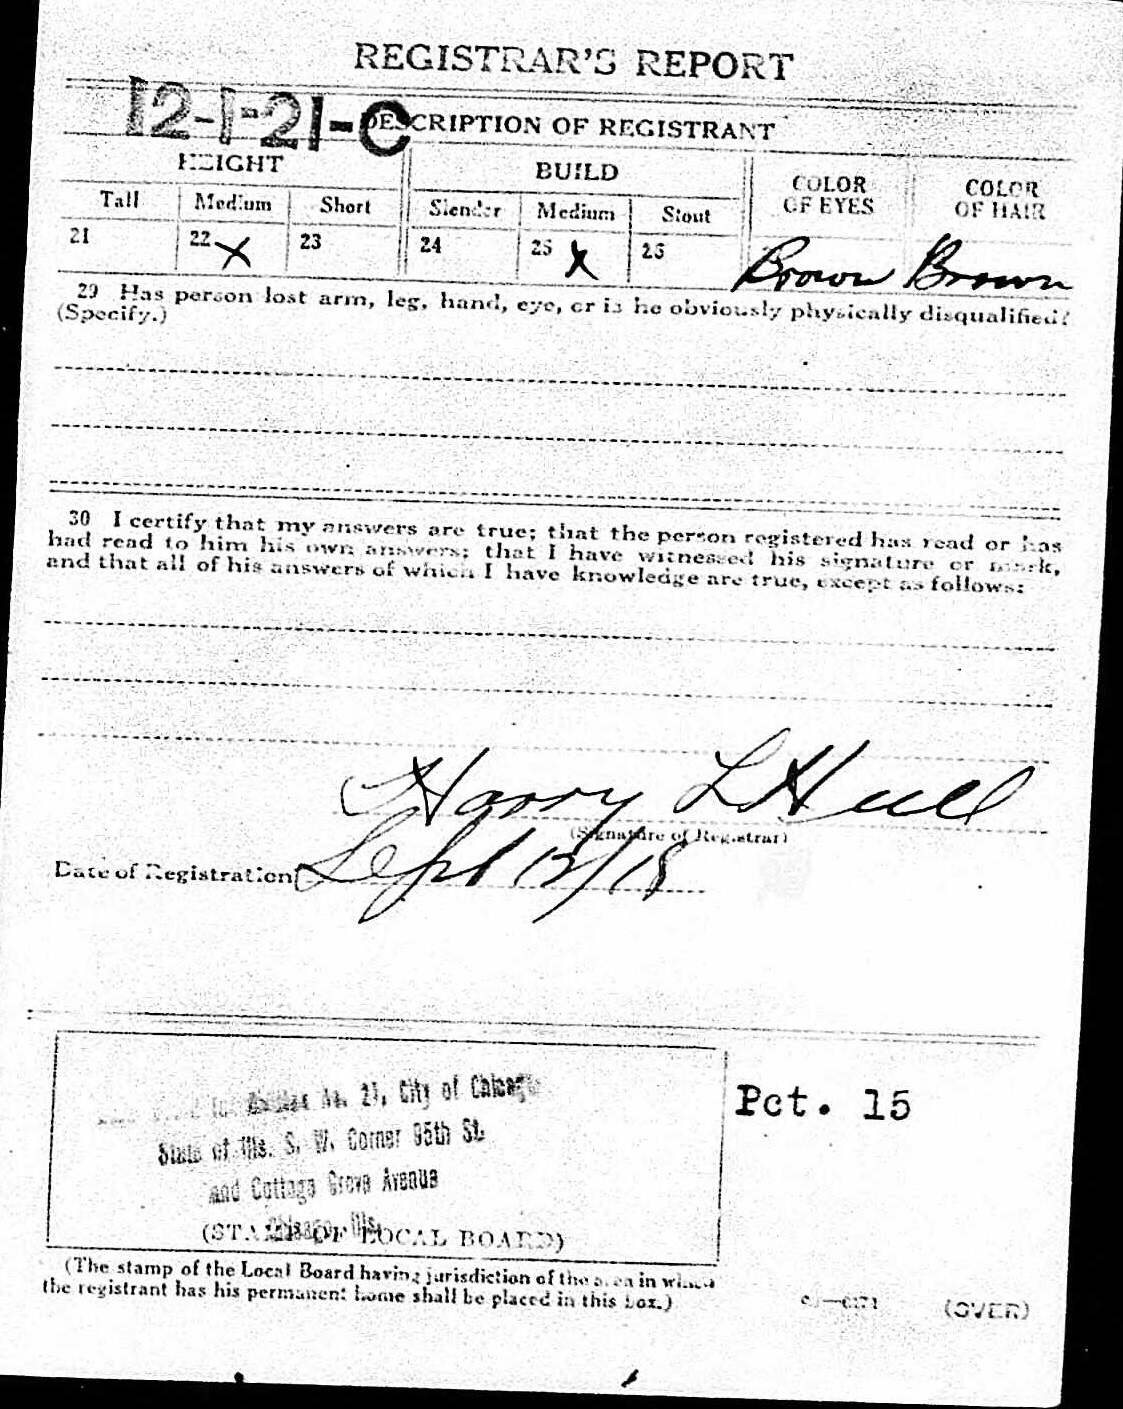 REGISTRAR'S REPORT
12-1-21-C
DESCRIPTION OF REGISTRANT
HEIGHT BUILD COLOR OF EYES COLOR OF HAIR
Tall Medium Short Slender Medium Stout
21 22 X 23 24 25 X 26 Brown Brown
29 Has person lost arm, leg, hand, eye, or is he obviously physically disqualified?
(Specify.)
30 I certify that my answers are true; that the person registered has read or has
had read to him his own answers; that I have witnessed his signature or mark,
and that all of his answers of which I have knowledge are true, except as follows:
Harry L Hull
(Signature of Registrar)
Date of Registration Sept 12/18
No. 21, City of Chicago
State of Ills. S. W. Corner 95th St.
and Cottage Grove Avenue
Chicago, Ills.
(STAMP OF LOCAL BOARD)
Pct. 15
(The stamp of the Local Board having jurisdiction of the area in which
the registrant has his permanent home shall be placed in this box.)
(OVER)